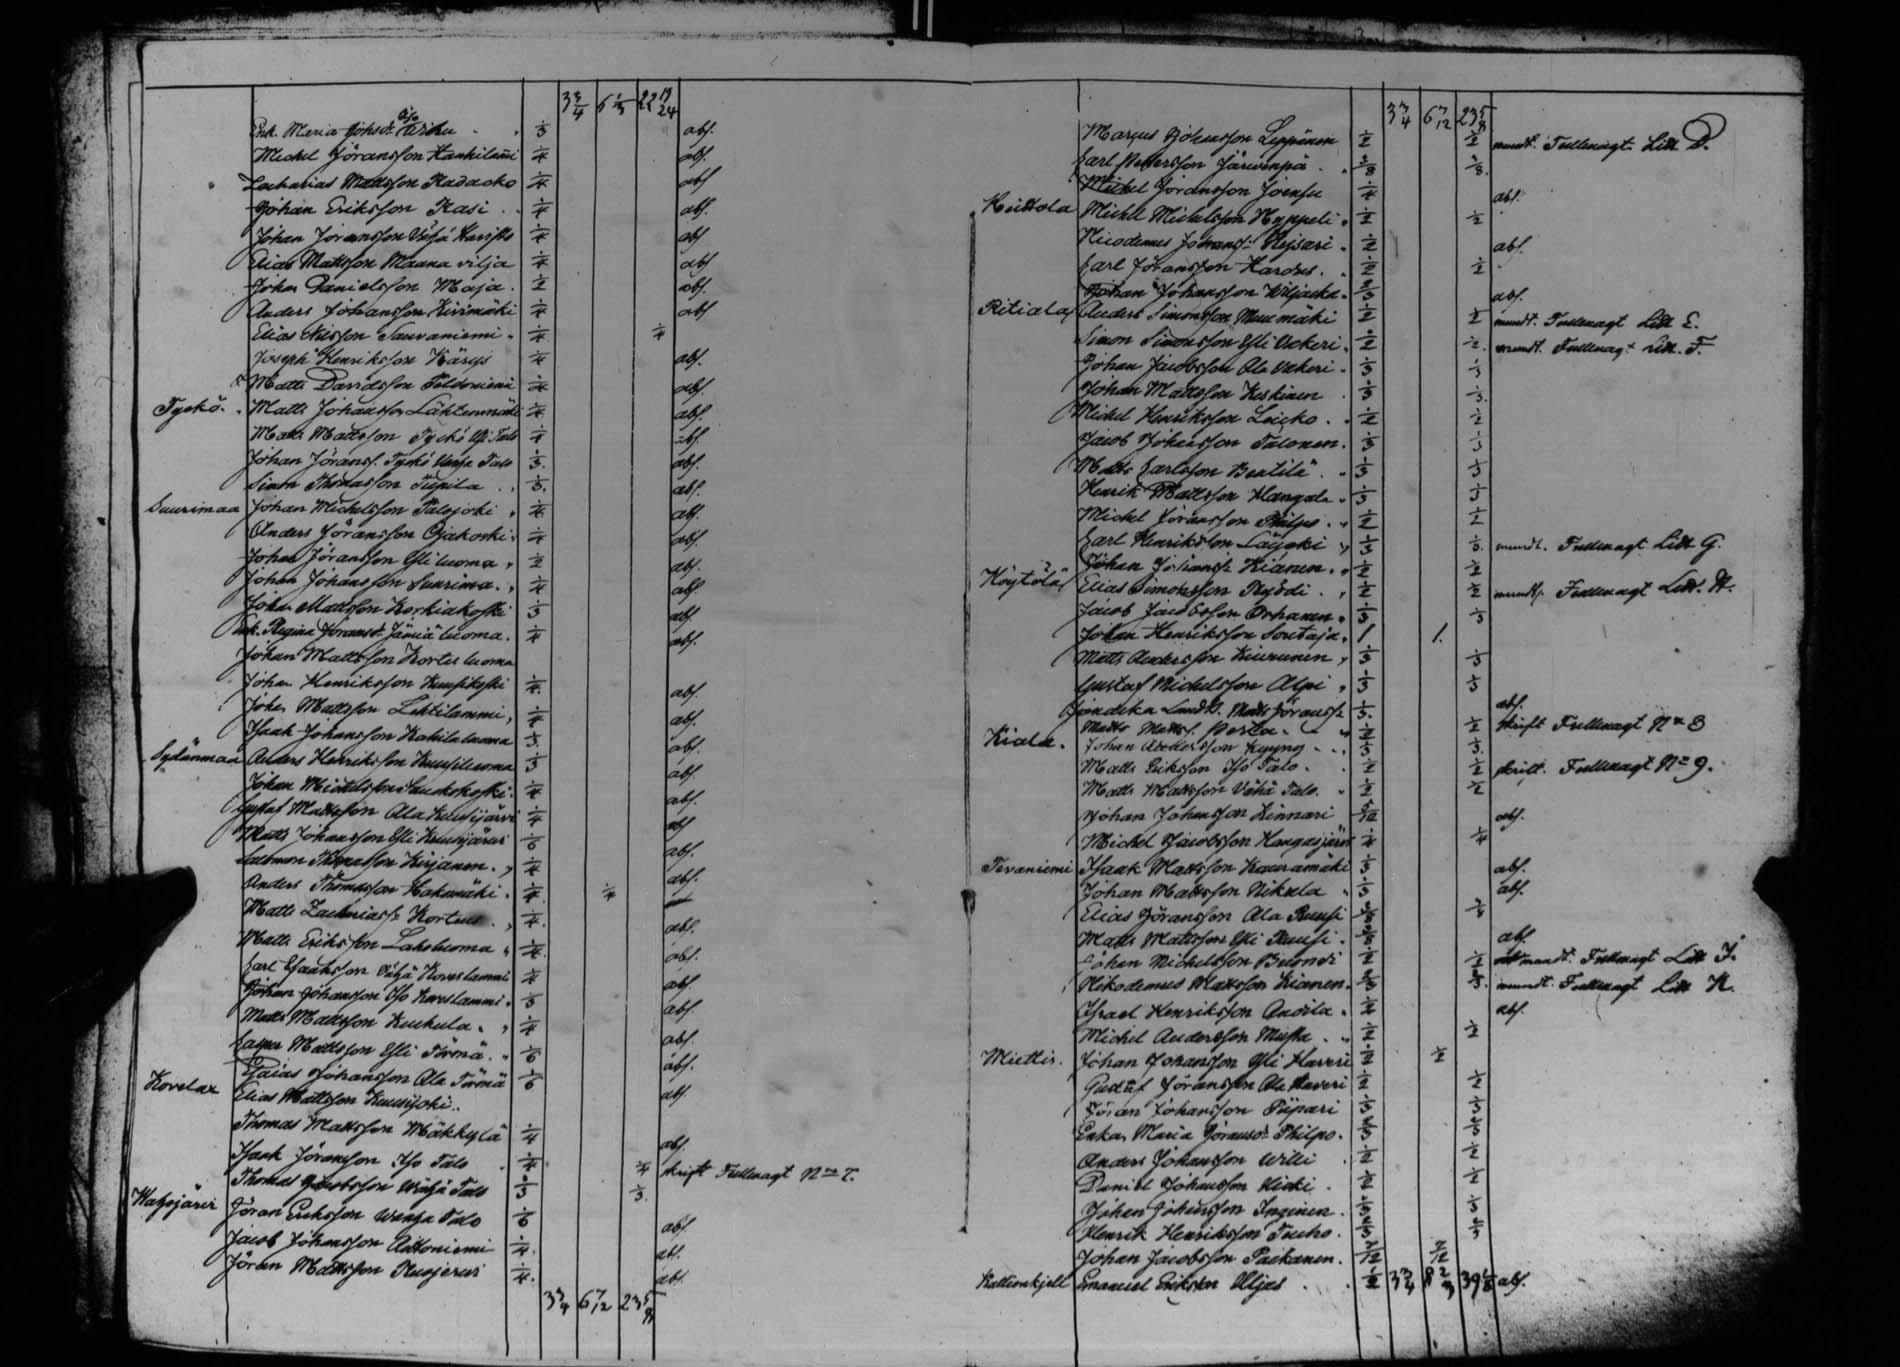 3 3/4 6 1/3 22 19/24
Enk. Maria Johsdr Iso Wrihu 1/3 abs.
Michel Jöransson Kankilammi 1/4 abs.
Zacharias Mattsson Radasko 1/4 abs
Johan Eriksson Kasi 1/4 abs.
Johan Jöransson Vähä Karisto 1/4 abs
Elias Mattsson Maanavilja 1/4 abs
Johan Danielsson Maja 1/2 abs.
Anders Johansson Kivimäki 1/4 abs
Elias Nilsson Sauraniemi 1/4 1/4
Joseph Henriksson Kärys 1/4 abs.
Matts Davidsson Peldoniemi 1/4 abs.
Tyskö Matts Johansson Lähteenmäki 1/4 abs.
Matts Mattsson Tyskö Yli Talo 1/4 abs.
Johan Jöranss. Tyskö Vanha Talo 1/3 abs.
Simon Thomasson Tupila 1/3 abs.
Suurimaa Johan Michelsson Talojoki 1/4 abs.
Anders Jöransson Ojakoski 1/4 abs.
Johan Jöransson Yliluoma 1/2 abs.
Johan Johansson Suurimaa 1/4 abs
Johan Mattsson Korkiakoski 1/3 abs.
Enk. Regina Jöransdr Jämiäluoma 1/4 abs.
Johan Mattsson Kortesluoma
Johan Henriksson Kuusikoski 1/4 abs.
Johan Mattsson Lehtilammi 1/4 abs.
Isaak Johansson Kohilaluoma 1/3 abs.
Sydänmaa Anders Henriksson Kuusiluoma 1/3 abs.
Johan Michelsson Haukoski 1/4 abs.
Gustaf Mattsson Ala Kuusijärvi 1/4 abs
Matts Johansson Yli Kuusijärvi 1/6 abs.
Salomon Thomasson Kirjanen 1/4 abs.
Anders Thomasson Hakomäki 1/4 1/4
Matts Zachriass: Kortus 1/4 abs.
Matts Eriksson Lakoluoma 1/4 abs.
Carl Isaaksson Vähä Koveslammi 1/4 abs
Johan Johansson Iso Koveslammi 1/3 abs.
Matts Mattsson Kuckula 1/4 abs.
Casper Mattsson Yli Törmä 1/6 abs.
Esaias Johansson Ala Törmä 1/6 abs.
Kovelax Elias Mattsson Kuusijoki
Thomas Mattsson Mäkkylä 1/4 abs.
Isaak Jöransson Iso Talo 1/4 1/4 skrift Fullmagt No 7.
Thomas Jacobsson Vähä Talo 1/3 1/3
Wahojärvi Jöran Eriksson Wanha Talo 1/6 abs
Jacob Johansson Anttoniemi 1/4 abs.
Jöran Mattsson Kuojärvi 1/4 abs.
3 3/4 6 7/12 23 5/8
3 3/4 6 7/12 23 5/8
Marcus Johansson Leppänen 1/2 1/2 mundt. Fullmagt Litt D.
Carl Pettersson Järvenpä 3/8 3/8
Michel Jöransson Joensu 1/4 abs.
Keittola Michel Michelsson Hyppeli 1/2 1/2
Nicodemus Johanss: Rejsari 1/2 abs.
Carl Jöransson Karhu 1/2 1/2
Johan Johansson Viljacka 2/3 abs.
Pitiala Anders Simonsson Muumäki 1/2 1/2 mundt. Fullmagt Litt E.
Simon Simonsson Yli Ockeri 1/2 1/2 mundt. Fullmagt Litt. F.
Johan Jacobsson Ala Ockeri 1/3 1/3
Johan Mattsson Keskinen 1/3 1/3
Michel Henriksson Luicko 1/2 1/2
Jacob Johansson Talonen 1/3 1/3
Matts Carlsson Bentilä 1/3 1/3
Henrik Mattsson Hangala 1/3 1/3
Michel Jöransson Philpo 1/2 1/2
Carl Henriksson Luijoki 1/3 1/3 mundt. Fullmagt Litt G.
Johan Johanss: Kiänen 1/2 1/2
Köytölä Elias Simonsson Ryödi 1/2 1/2 mundt. Fullmagt Litt. H.
Jacob Jacobsson Orhanen 1/3 1/3
Johan Henriksson Soutaja 1 1.
Matts Andersson Kiviniemi 1/3 1/3
Gustaf Michelsson Alpi 1/3 1/3
Matts Jöranss: 1/3 abs.
Matts Matts: Perka 1/2 1/2 skrift Fullmagt No 8
Kiala Johan Andersson Kyyny 1/3 1/3
Matts Eriksson Iso Talo 1/2 1/2 skrift. Fullmagt No 9.
Matts Mattsson Vähä Talo 1/2 1/2
Johan Johansson Kinnari 5/12 abs.
Michel Jacobsson Kangasjärvi 1/4 1/4
Tevaniemi Isaak Mattsson Kauramäki 1/3 abs.
Johan Mattsson Nikula 1/3 abs.
Elias Jöransson Ala Ruusi 3/8 3/8
Matts Mattsson Yli Ruusi 3/8 abs.
Johan Michelsson Buondi 1/2 1/2 mundt. Fullmagt Litt J.
Nikodemus Mattsson Kiänen 2/3 2/3 mundt. Fullmagt Litt K.
Israel Henriksson Anoila 1/4 abs.
Michel Andersson Musta 1/2 1/2
Miettis Johan Johansson Yli Haveri 1/2 1/2
Gustaf Jöransson Ala Haveri 1/2 1/2
Jöran Johansson Piipari 1/3 1/3
Enkan Maria Jöransdr Philpo 2/3 2/3
Anders Johansson Willi 1/2 1/2
Daniel Johansson Kiaki 1/2 1/2
Johan Johansson Inginen 1/3 1/3
Henrik Henriksson Tucho 2/3 2/3
Johan Jacobsson Packanen 7/12 7/12
Kallionkjell Emanuel Eriksson Iljas 1/2 3 3/4 8 2/3 39 1/8 abs.